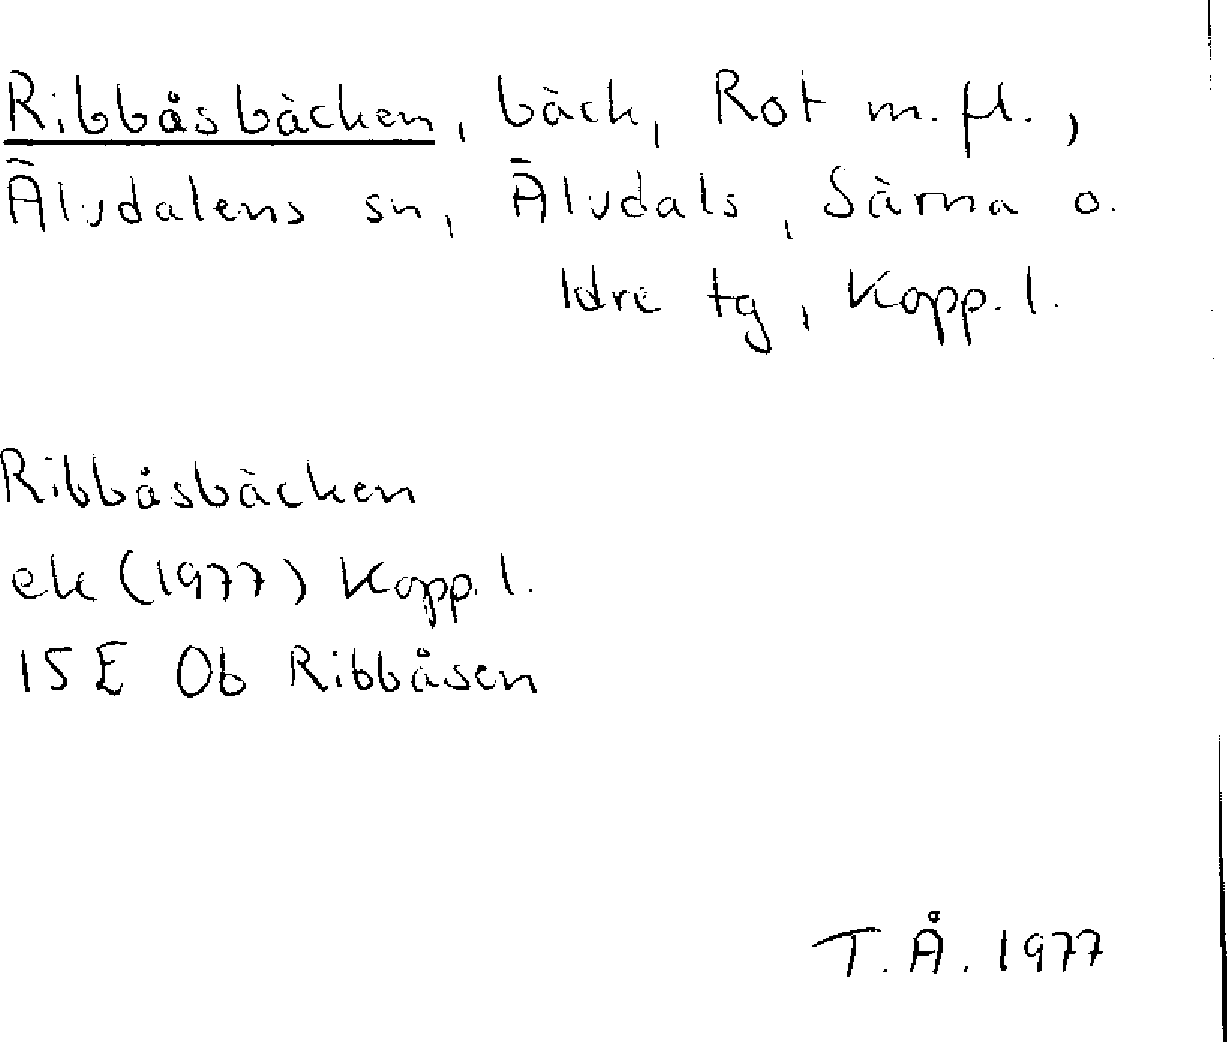 Ribbåsbäcken, bäck, Rot m.fl.,
Älvdalens sn, Älvdals, Särna o.
Idre tg, Kopp.l.
Ribbåsbäcken
ek (1977) Kopp.l.
15 E 0b Ribbåsen
T.Å. 1977